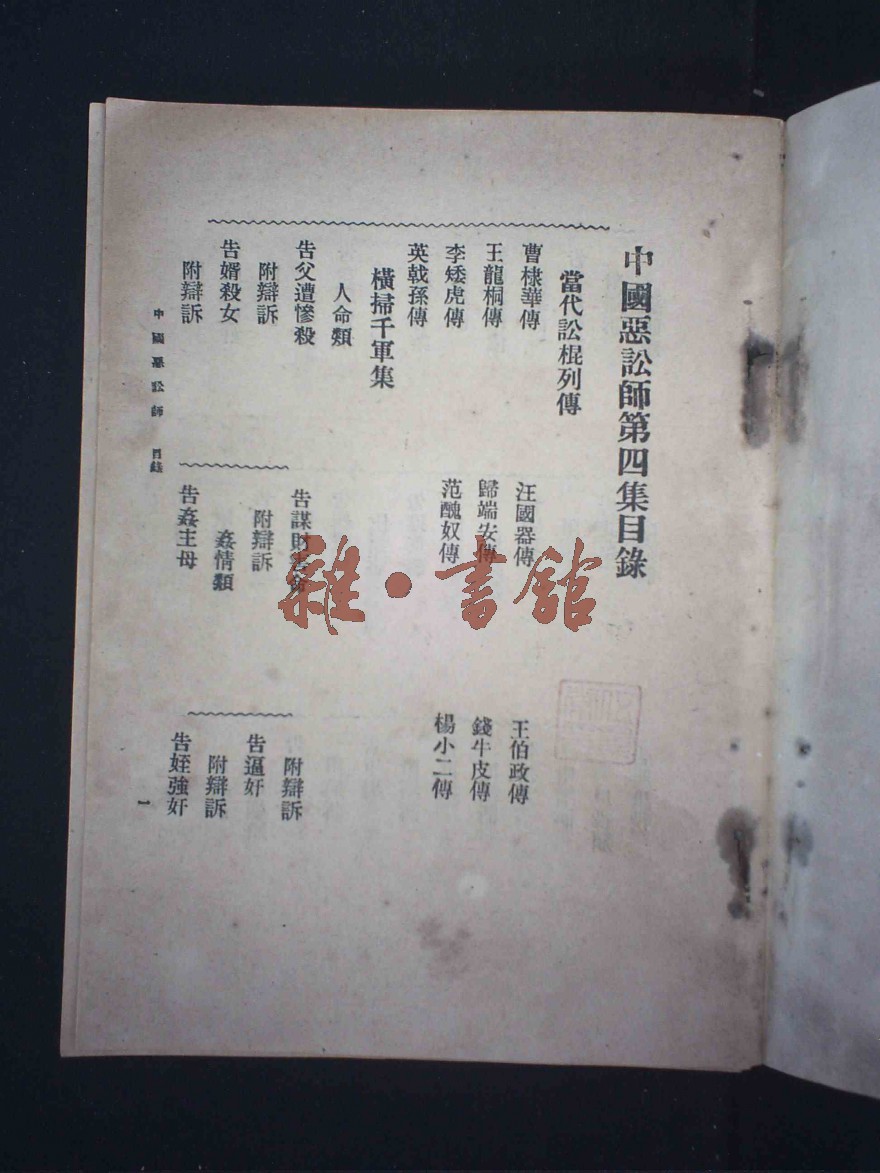 中國惡訟師第四集目錄
當代訟棍列傳
曹棣華傳
汪國器傳
王伯政傳
王龍桐傳
歸端安傳
錢牛皮傳
李矮虎傳
范醜奴傳
楊小二傳
英戟孫傳
橫掃千軍集
人命類
告父遭慘殺
附辯訴
告婿殺女
附辯訴
告謀財害命
附辯訴
姦情類
告姦主母
附辯訴
告逼奸
附辯訴
告姪強奸
中國惡訟師 目錄
一
雜·書館